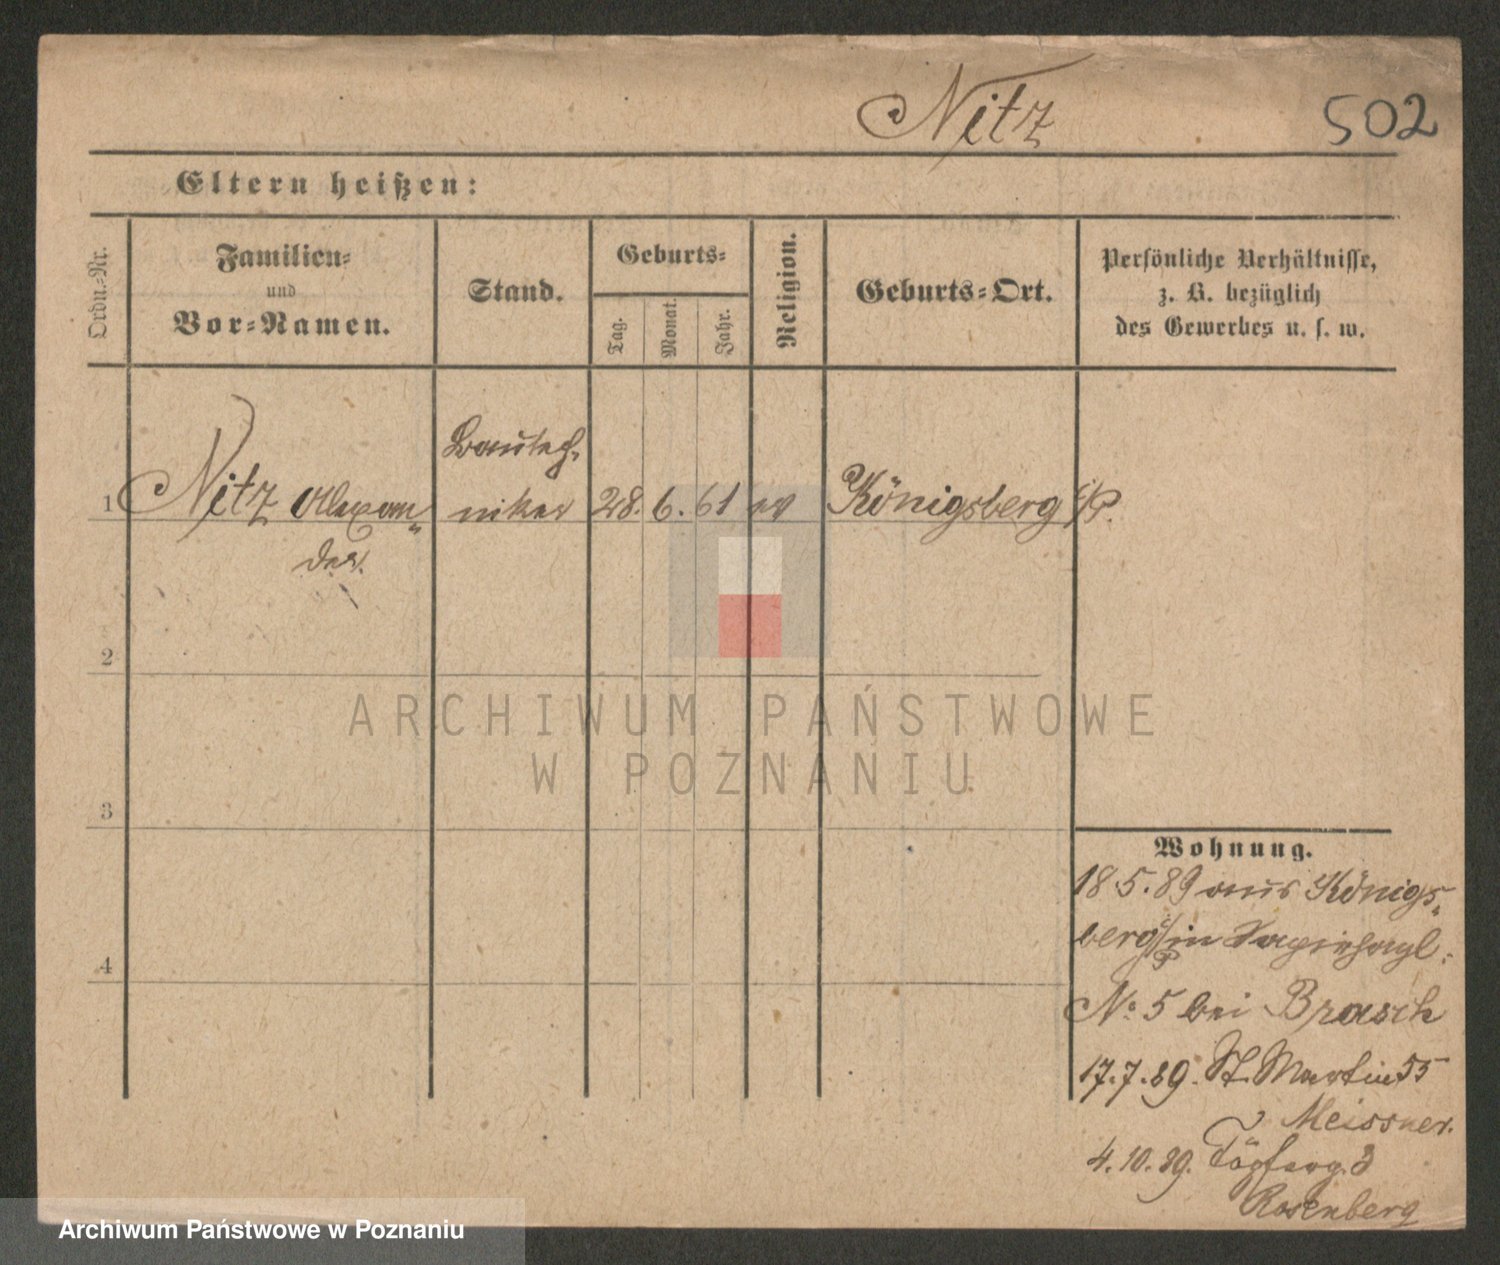 Nitz
502
Eltern heißen:
Ordn.-Nr.
Familien-
und
Vor-Namen.
Stand.
Geburts-
Tag.
Monat.
Jahr.
Religion.
Geburts-Ort.
Persönliche Verhältnisse,
z. B. bezüglich
des Gewerbes u. s. w.
Bautech-
1 Nitz Alexan- niker 28. 6. 61 ev Königsberg i/P.
der.
2
3
4
ARCHIWUM PAŃSTWOWE
W POZNANIU
Wohnung.
18.5.89 aus Königs-
berg i/P in
No 5 bei Brasch
17.7.89. St. Martin 55
Meissner.
4.10.89. Töpferg. 3
Rosenberg
Archiwum Państwowe w Poznaniu